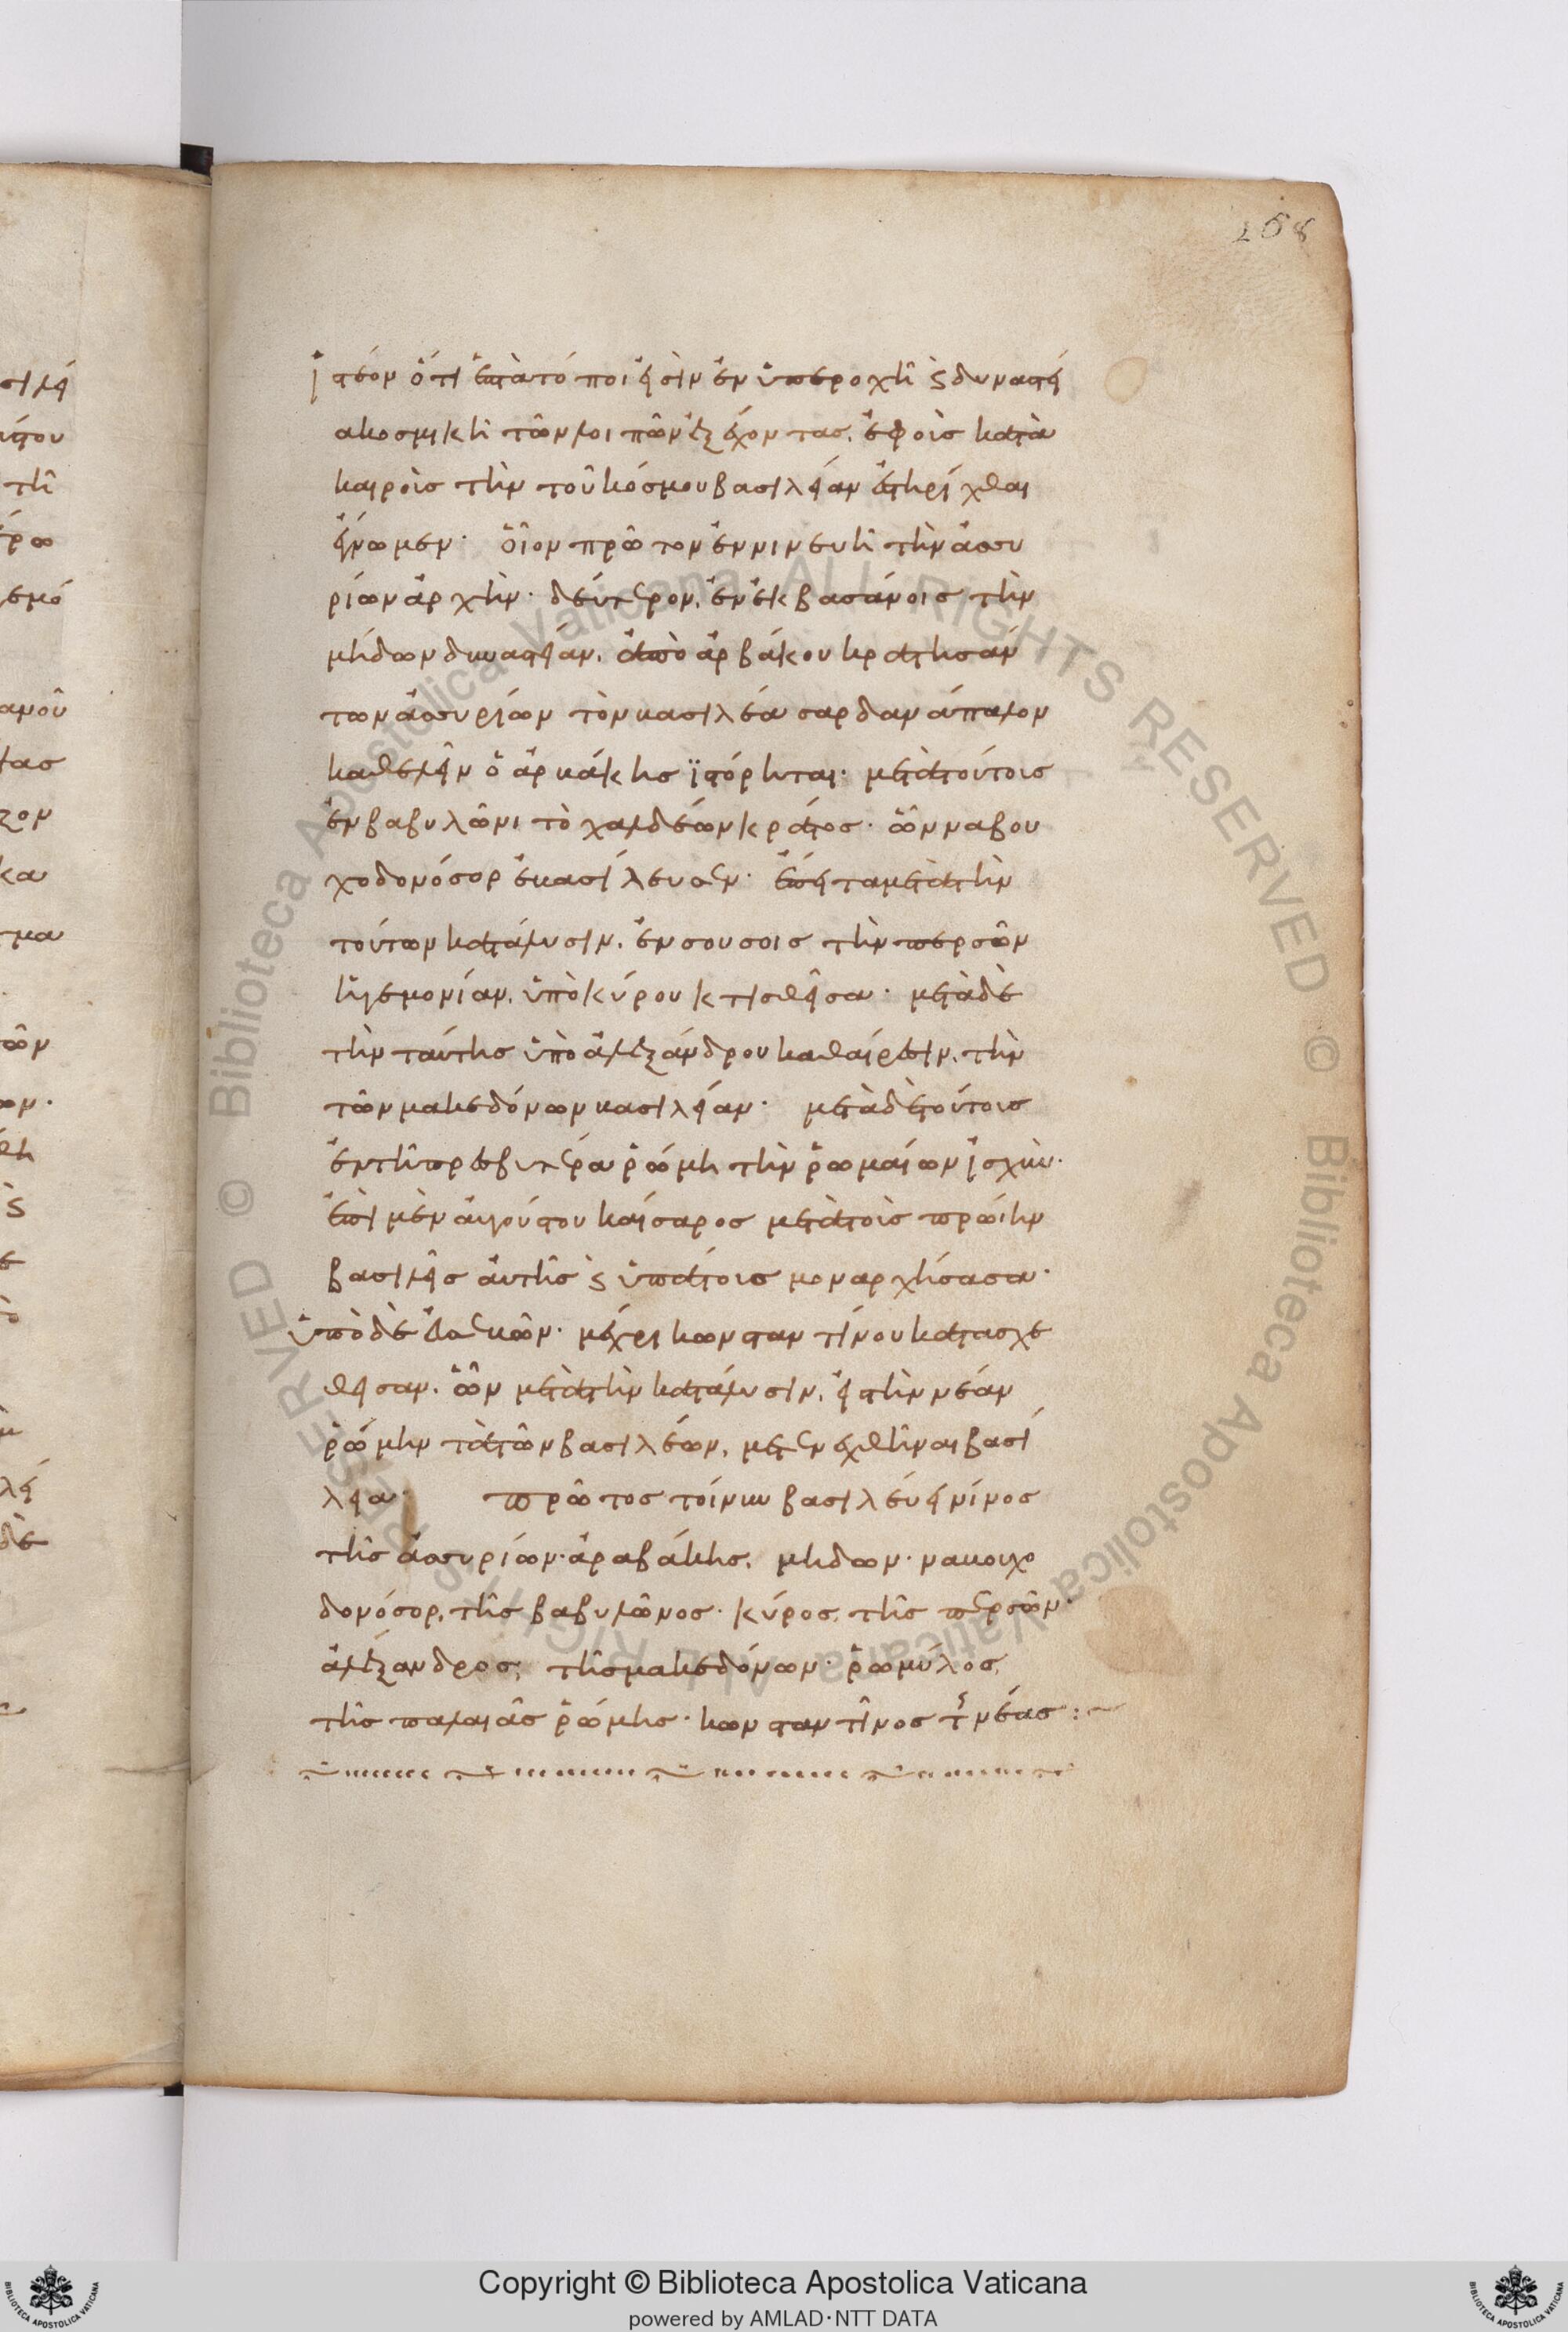 268
ἰστέον ὅτι ἑπτὰ τόποι εἰσὶν ἐν ὑπεροχῆι ϛ δυναστεί
α κοσμικῆι τῶν λοιπῶν ἐξέχοντας. ἐφ οἷς κατὰ
καιροὺς τὴν τοῦ κόσμου βασιλείαν ἐστηρίχθαι
εἴπωμεν· οἷον πρῶτον ἐν νινευῆι τὴν ἀσσυ
ρίων ἀρχήν· δεύτερον. ἐν ἐκβατάνοις τὴν
μήδων δυναστείαν. ἀπὸ ἀρβάκου κρατήσασαν
των ἀσσυρίων τὸν βασιλέα σαρδανάπαλον
καθελεῖν ὁ ἀρβάκης ἱστόρηται· μετὰ τούτους
ἐν βαβυλῶνι τὸ χαλδέων κράτος· ὧν ναβου
χοδονόσορ ἐβασίλευσεν· ἔπειτα μετὰ τὴν
τούτων κατάλυσιν. ἐν σουσοις τὴν περσῶν
ἡγεμονίαν. ὑπὸ κύρου κτισθεῖσαν· μετὰ δὲ
τὴν ταύτης ὑπὸ ἀλεξάνδρου καθαίρεσιν. τὴν
τῶν μακεδόνων βασιλείαν· μετὰ δὲ τούτους
ἐν τῆι πρεσβυτέρα ῥώμη τὴν ῥωμαίων ἰσχύν·
ἐπὶ μὲν αὐγούστου καίσαρος μετὰ τοὺς πρώιην
βασιλεῖς αὐτῆς ϛ ὑπάτους μοναρχήσασαν·
ὑπὸ δὲ μέχρι κωνσταντίνου κατασχε
θεῖσαν. ὧν μετὰ τὴν κατάλυσιν. εἰς τὴν νέαν
ῥώμην τὰ τῶν βασιλέων. μετενεχθῆναι βασί
λεια· πρῶτος τοίνυν βασιλεύει νίνος
τῆς ἀσσυρίων· ἀραβάκης. μηδων· ναβουχο
δονόσορ. τῆς βαβυλῶνος· κύρος. τῆς περσῶν·
ἀλέξανδρος. τῆς μακεδόνων· ῥωμύλος.
τῆς παλαιᾶς ῥώμης· κωνσταντῖνος τῆς νέας :~
© Biblioteca Apostolica Vaticana ALL RIGHTS RESERVED © Biblioteca Apostolica Vaticana ALL RIGHTS RESERVED
Copyright © Biblioteca Apostolica Vaticana
powered by AMLAD·NTT DATA